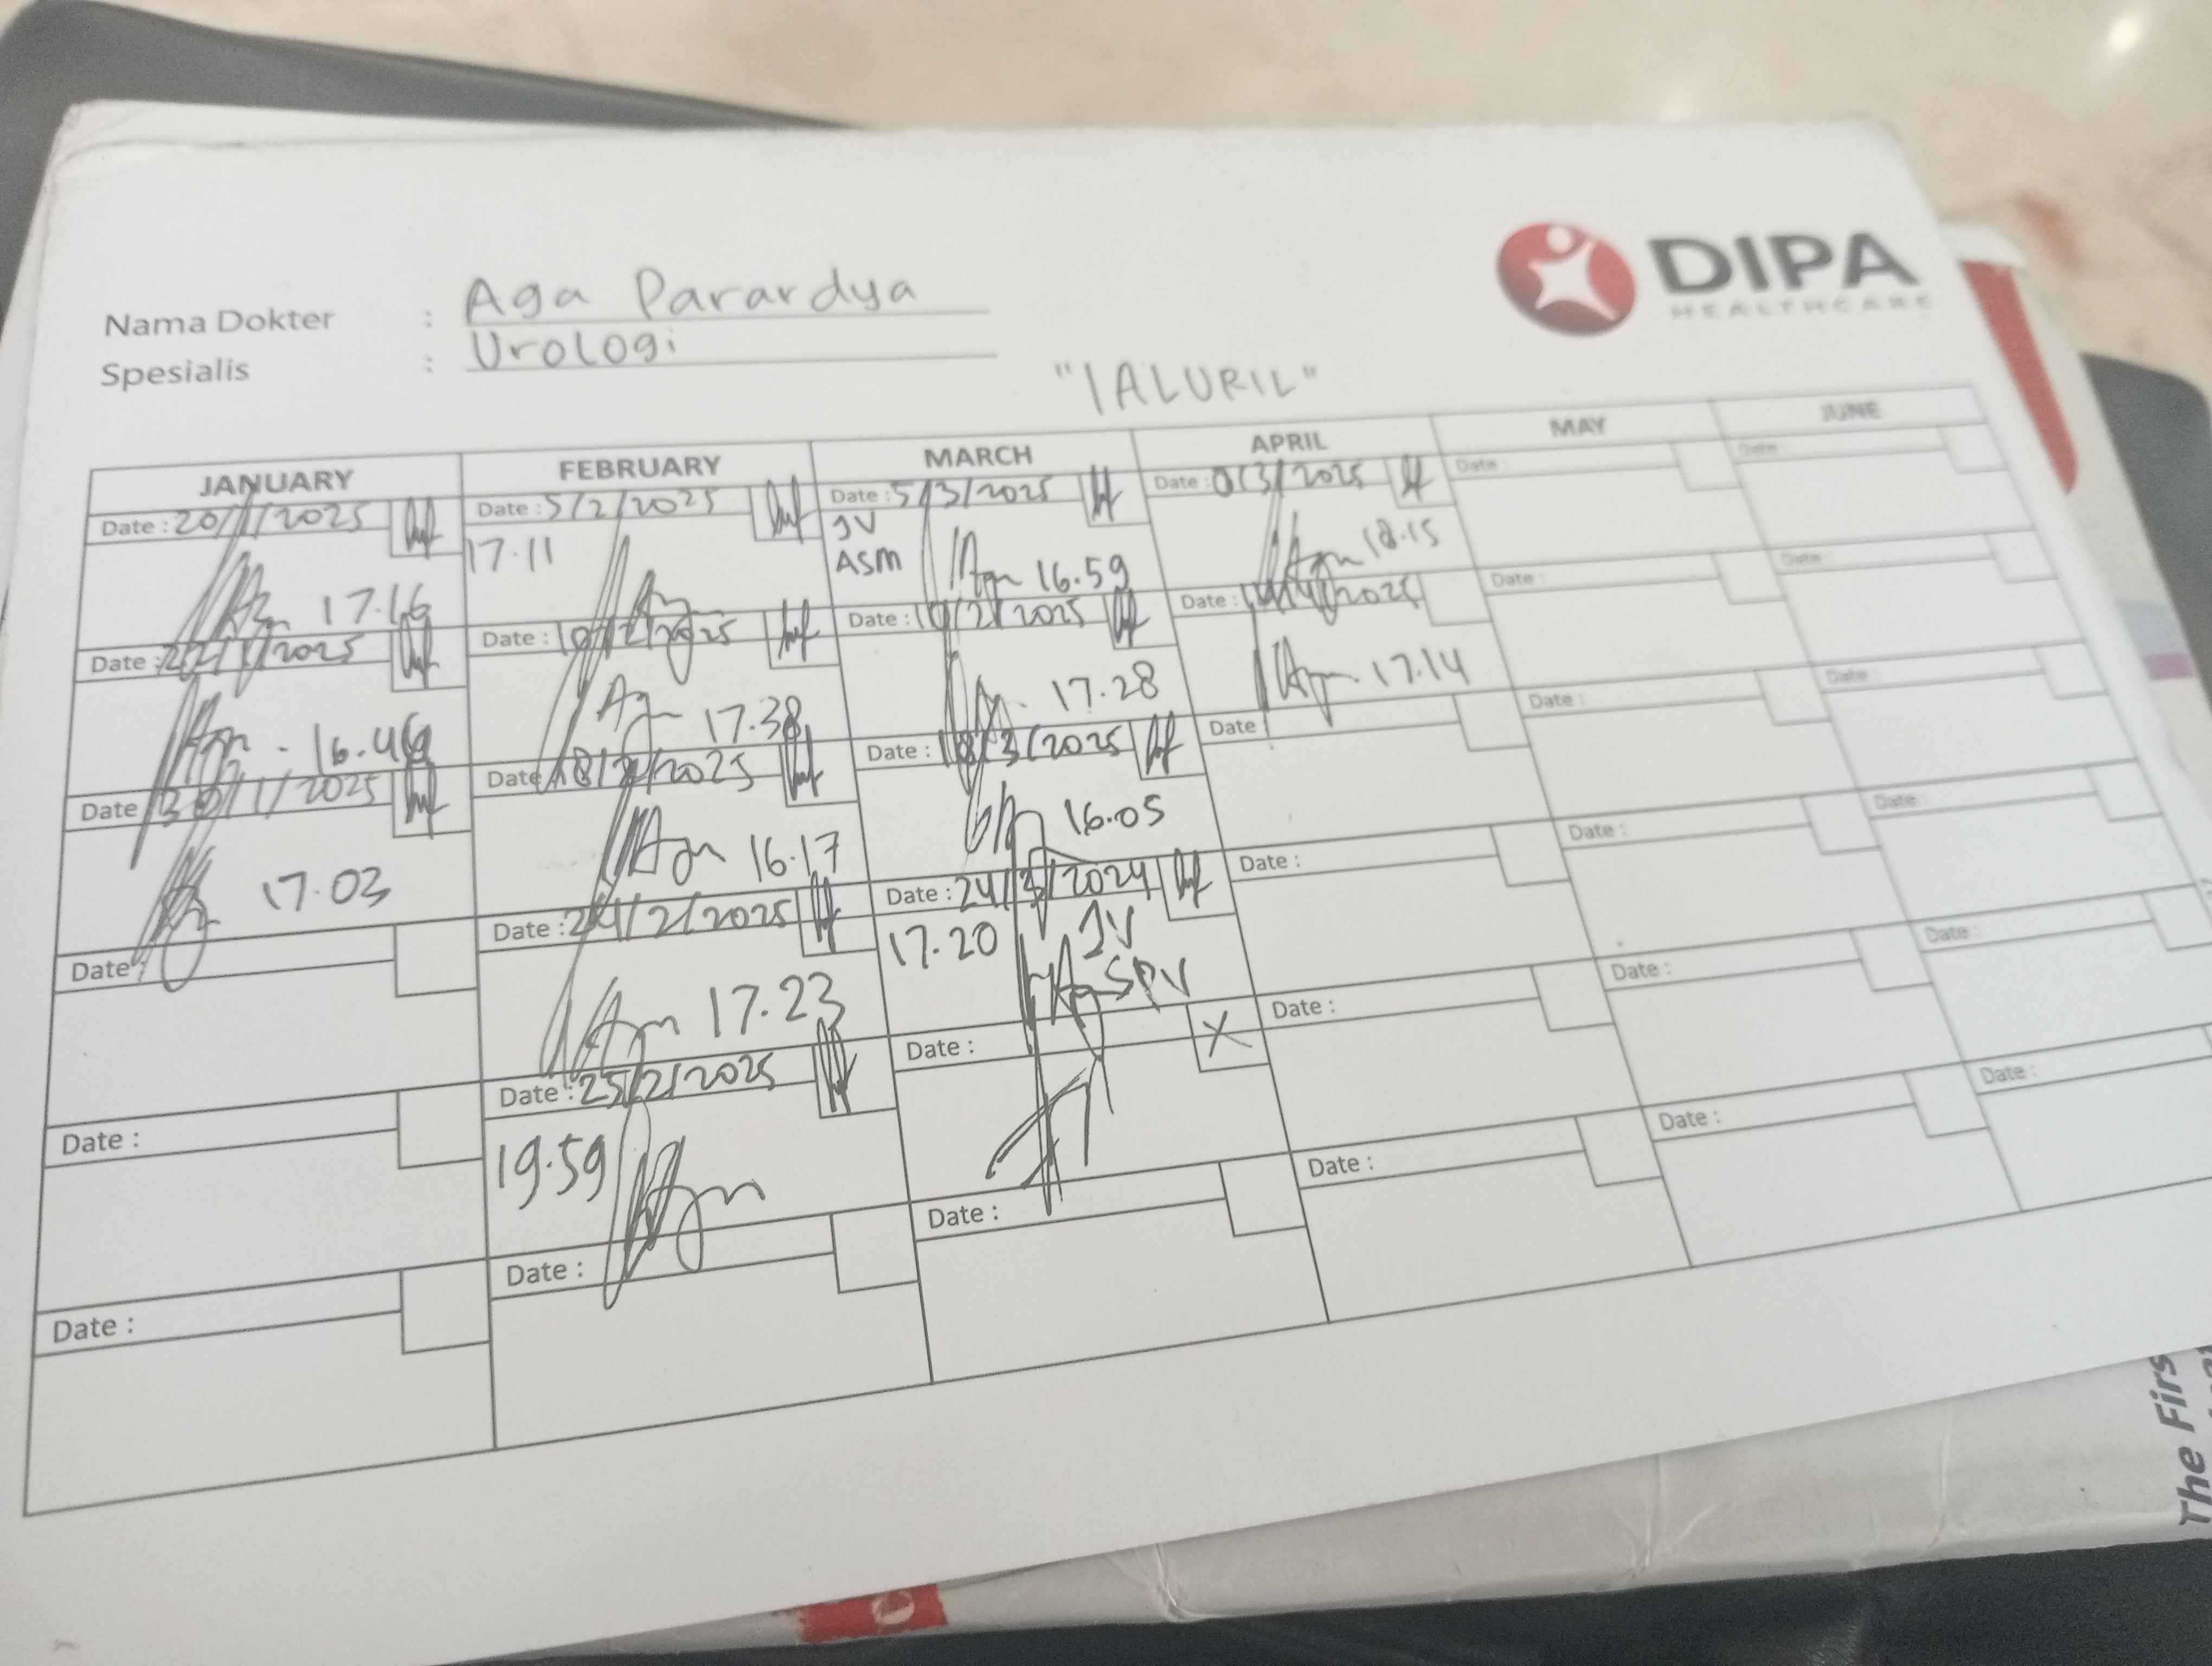 DIPA
HEALTHCARE
Nama Dokter : Aga Parardya
Spesialis : Urologi
"IALURIL"
JANUARY
Date : 20/1/2025
17.16
Date : 22/1/2025
16.46
Date : 30/1/2025
17.03
Date :
Date :
Date :
FEBRUARY
Date : 5/2/2025
17.11
Date : 10/2/2025
17.38
Date : 18/2/2025
16.17
Date : 24/2/2025
17.23
Date : 25/2/2025
19.59
Date :
MARCH
Date : 5/3/2025
JV
ASM
16.59
Date : 10/2/2025
17.28
Date : 18/3/2025
16.05
Date : 24/3/2024
17.20 JV
SPV
Date :
X
Date :
APRIL
Date : /3/2025
18.15
Date :
17.14
Date
Date :
Date :
Date :
MAY
Date :
Date :
Date :
Date :
Date :
Date :
JUNE
Date :
Date :
Date :
Date :
Date :
Date :
The Firs